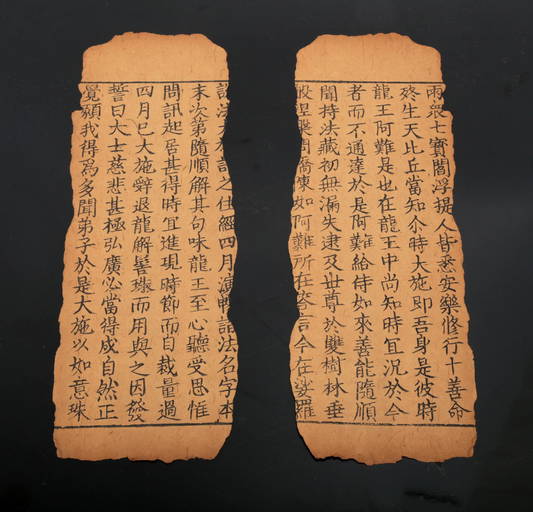 雨眾七寶閻浮提人皆悉安樂修行十善命
終生天比丘當知尒時大施即吾身是彼時
龍王阿難是也在龍王中尚知時宜況於今
者而不通達於是阿難給侍如來善能隨順
聞持法藏初無漏失逮及世尊於雙樹林垂
般涅槃問憍陳如阿難所在荅言今在娑羅
之住經四月演暢諸法名字本
末次第隨順解其句味龍王至心聽受思惟
問訊起居甚得時宜進現時節而自裁量過
四月已大施辭退龍解髻珠而用與之因發
誓曰大士慈悲甚極弘廣必當得成自然正
覺願我得為多聞弟子於是大施以如意珠